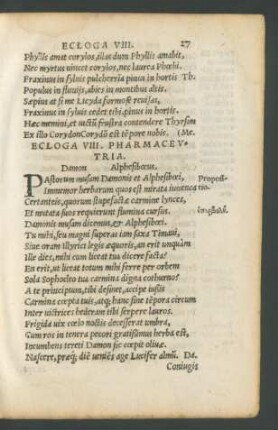 ECLOGA VIII. 27
Phyllis amat corylos, illas dum Phyllis amabit,
Nec myrtus vincet corylos, nec laurea Phœbi.
Fraxinus in syluis pulcherrima pinus in hortis Th.
Populus in fluuijs, abies in montibus altis.
Sæpius at si me Lycida formose reuisas,
Fraxinus in syluis cedet tibi, pinus in hortis.
Hæc memini, et uictū frustra contendere Thyrsim
Ex illo Corydon Corydō est tēpore nobis. (Me.
ECLOGA VIII. PHARMACEV-
TRIA.
Damon Alphesibœus.
PAstorum musam Damonis et Alphesibœi, Propositio.
Immemor herbarum quos est mirata iuuenca
Certanteis, quorum stupefactæ carmine lynces,
Et mutata suos requierunt flumina cursus.
Damonis musam dicemus, et Alphesibœi.
Tu mihi, seu magni superas iam saxa Timaui,
Siue oram illyrici legis æquoris, an erit unquàm
Ille dies, mihi cum liceat tua dicere facta?
En erit, ut liceat totum mihi ferre per orbem
Sola Sophocleo tua carmina digna cothurno?
A te principium, tibi desinet, accipe iussis
Carmina cœpta tuis, atq; hanc sine tēpora circum
Inter uictrices hederam tibi serpere lauros.
Frigida uix cœlo noctis decesserat umbra,
Cum ros in tenera pecori gratissimus herba est,
Incumbens tereti Damon sic cœpit oliuæ.
Nascere, præq; diē ueniēs age Lucifer almū. DA.
Coniugis